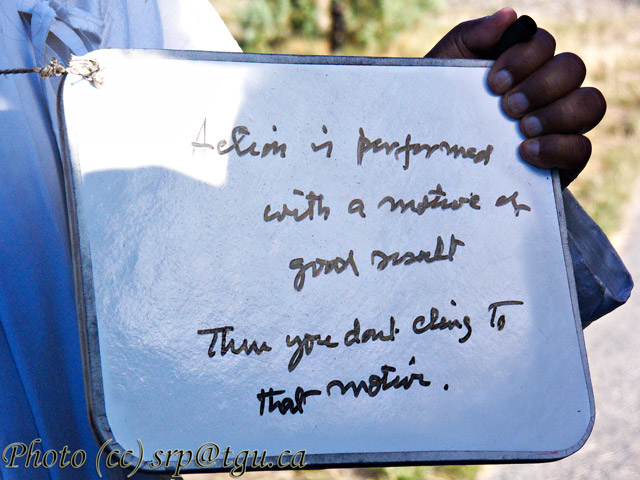 Action is performed
with a motive of
good result
Then you dont cling To
that motive.
Photo (cc) srp@tgu.ca